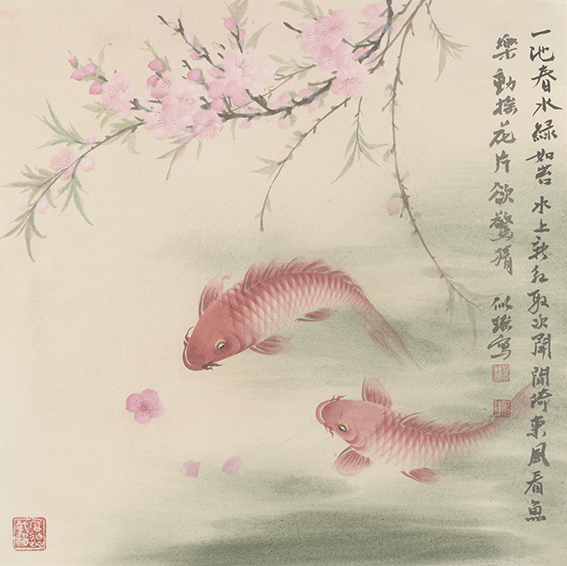 一池春水綠如苔水上新紅取次開閒倚東風看魚
樂動搖花片欲驚猜
似寫